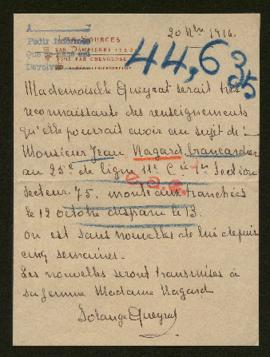 20 Nbre 1916.
44,635
Mademoiselle Queyrat serait très
reconnaissante des renseignements
qu'elle pourrait avoir au sujet de
Monsieur Jean Nagard brancardier
au 25e de ligne 11e Cie 1re Section
secteur 75. monté aux tranchées
le 12 octobre disparu le 13.
on est sans nouvelles de lui depuis
cinq semaines.
Les nouvelles seront transmises à
sa femme Madame Nagard
Solange Queyrat